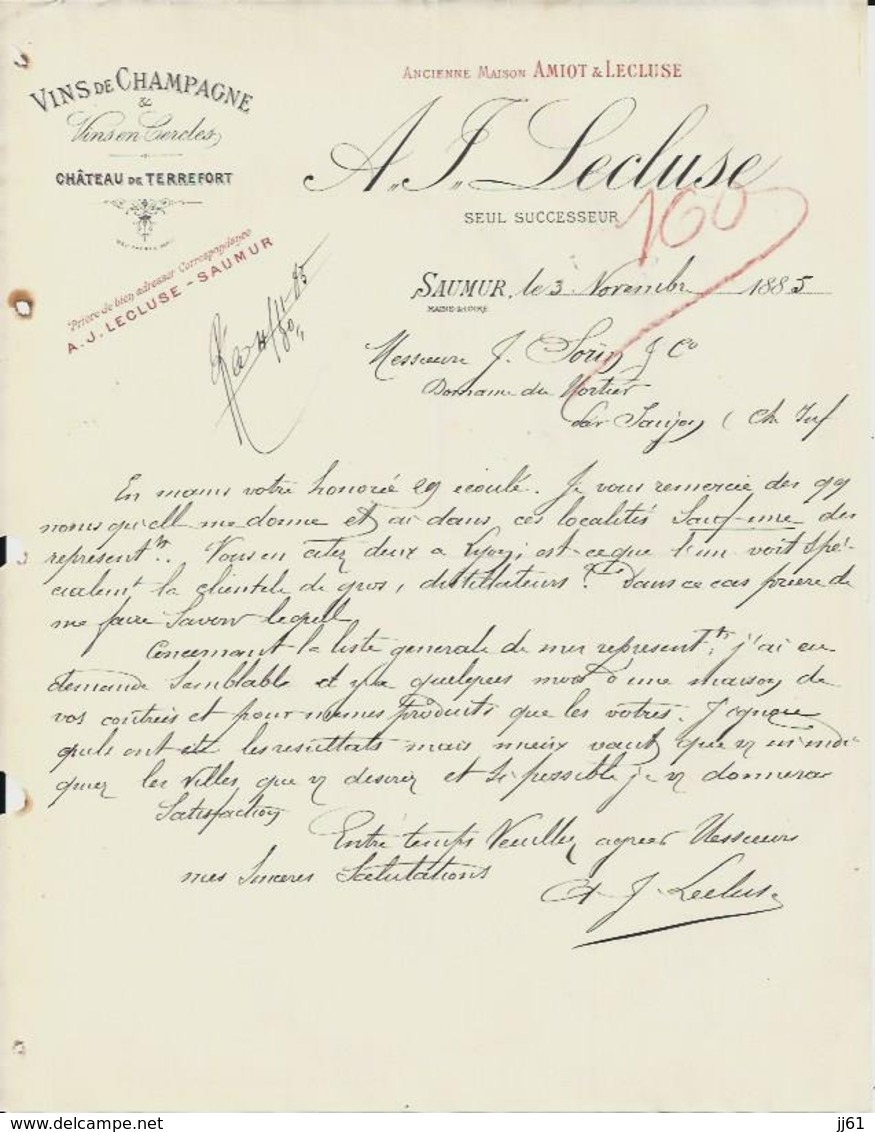 VINS DE CHAMPAGNE
&
Vins en Cercles
CHÂTEAU DE TERREFORT
Prière de bien adresser Correspondance
A. J. LECLUSE - SAUMUR
ANCIENNE MAISON AMIOT & LECLUSE
A. J. Lecluse
SEUL SUCCESSEUR
160
SAUMUR, le 3 Novembre 1885
MAINE & LOIRE
Messieurs J. Sorin & Co
Domaine du Mortier
par Saujon (Ch Inf
En mains votre honorée 29 écoulé. Je vous remercie des qq
noms qu'ell me donne et ai dans ces localités Sauf une des
représentts. Vous en citez deux a Lyon; est-ce que l'un voit Spé-
cialemt la clientele de gros, distillateurs? Dans ce cas priere de
me faire Savoir lequell
Concernant la liste generale de mes représentts, j'ai eu
demande Semblable il y a quelques mois d'une maison de
vos contrées et pour memes produits que les votres. J'ignore
quels ont été les resultats mais mieux vaut que v m'indi
quiez les Villes que v desirez et Si possible je v donnerai
Satisfaction
Entre temps Veuillez agreer Messieurs
mes Sinceres Salutations
A J. Lecluse
jj61